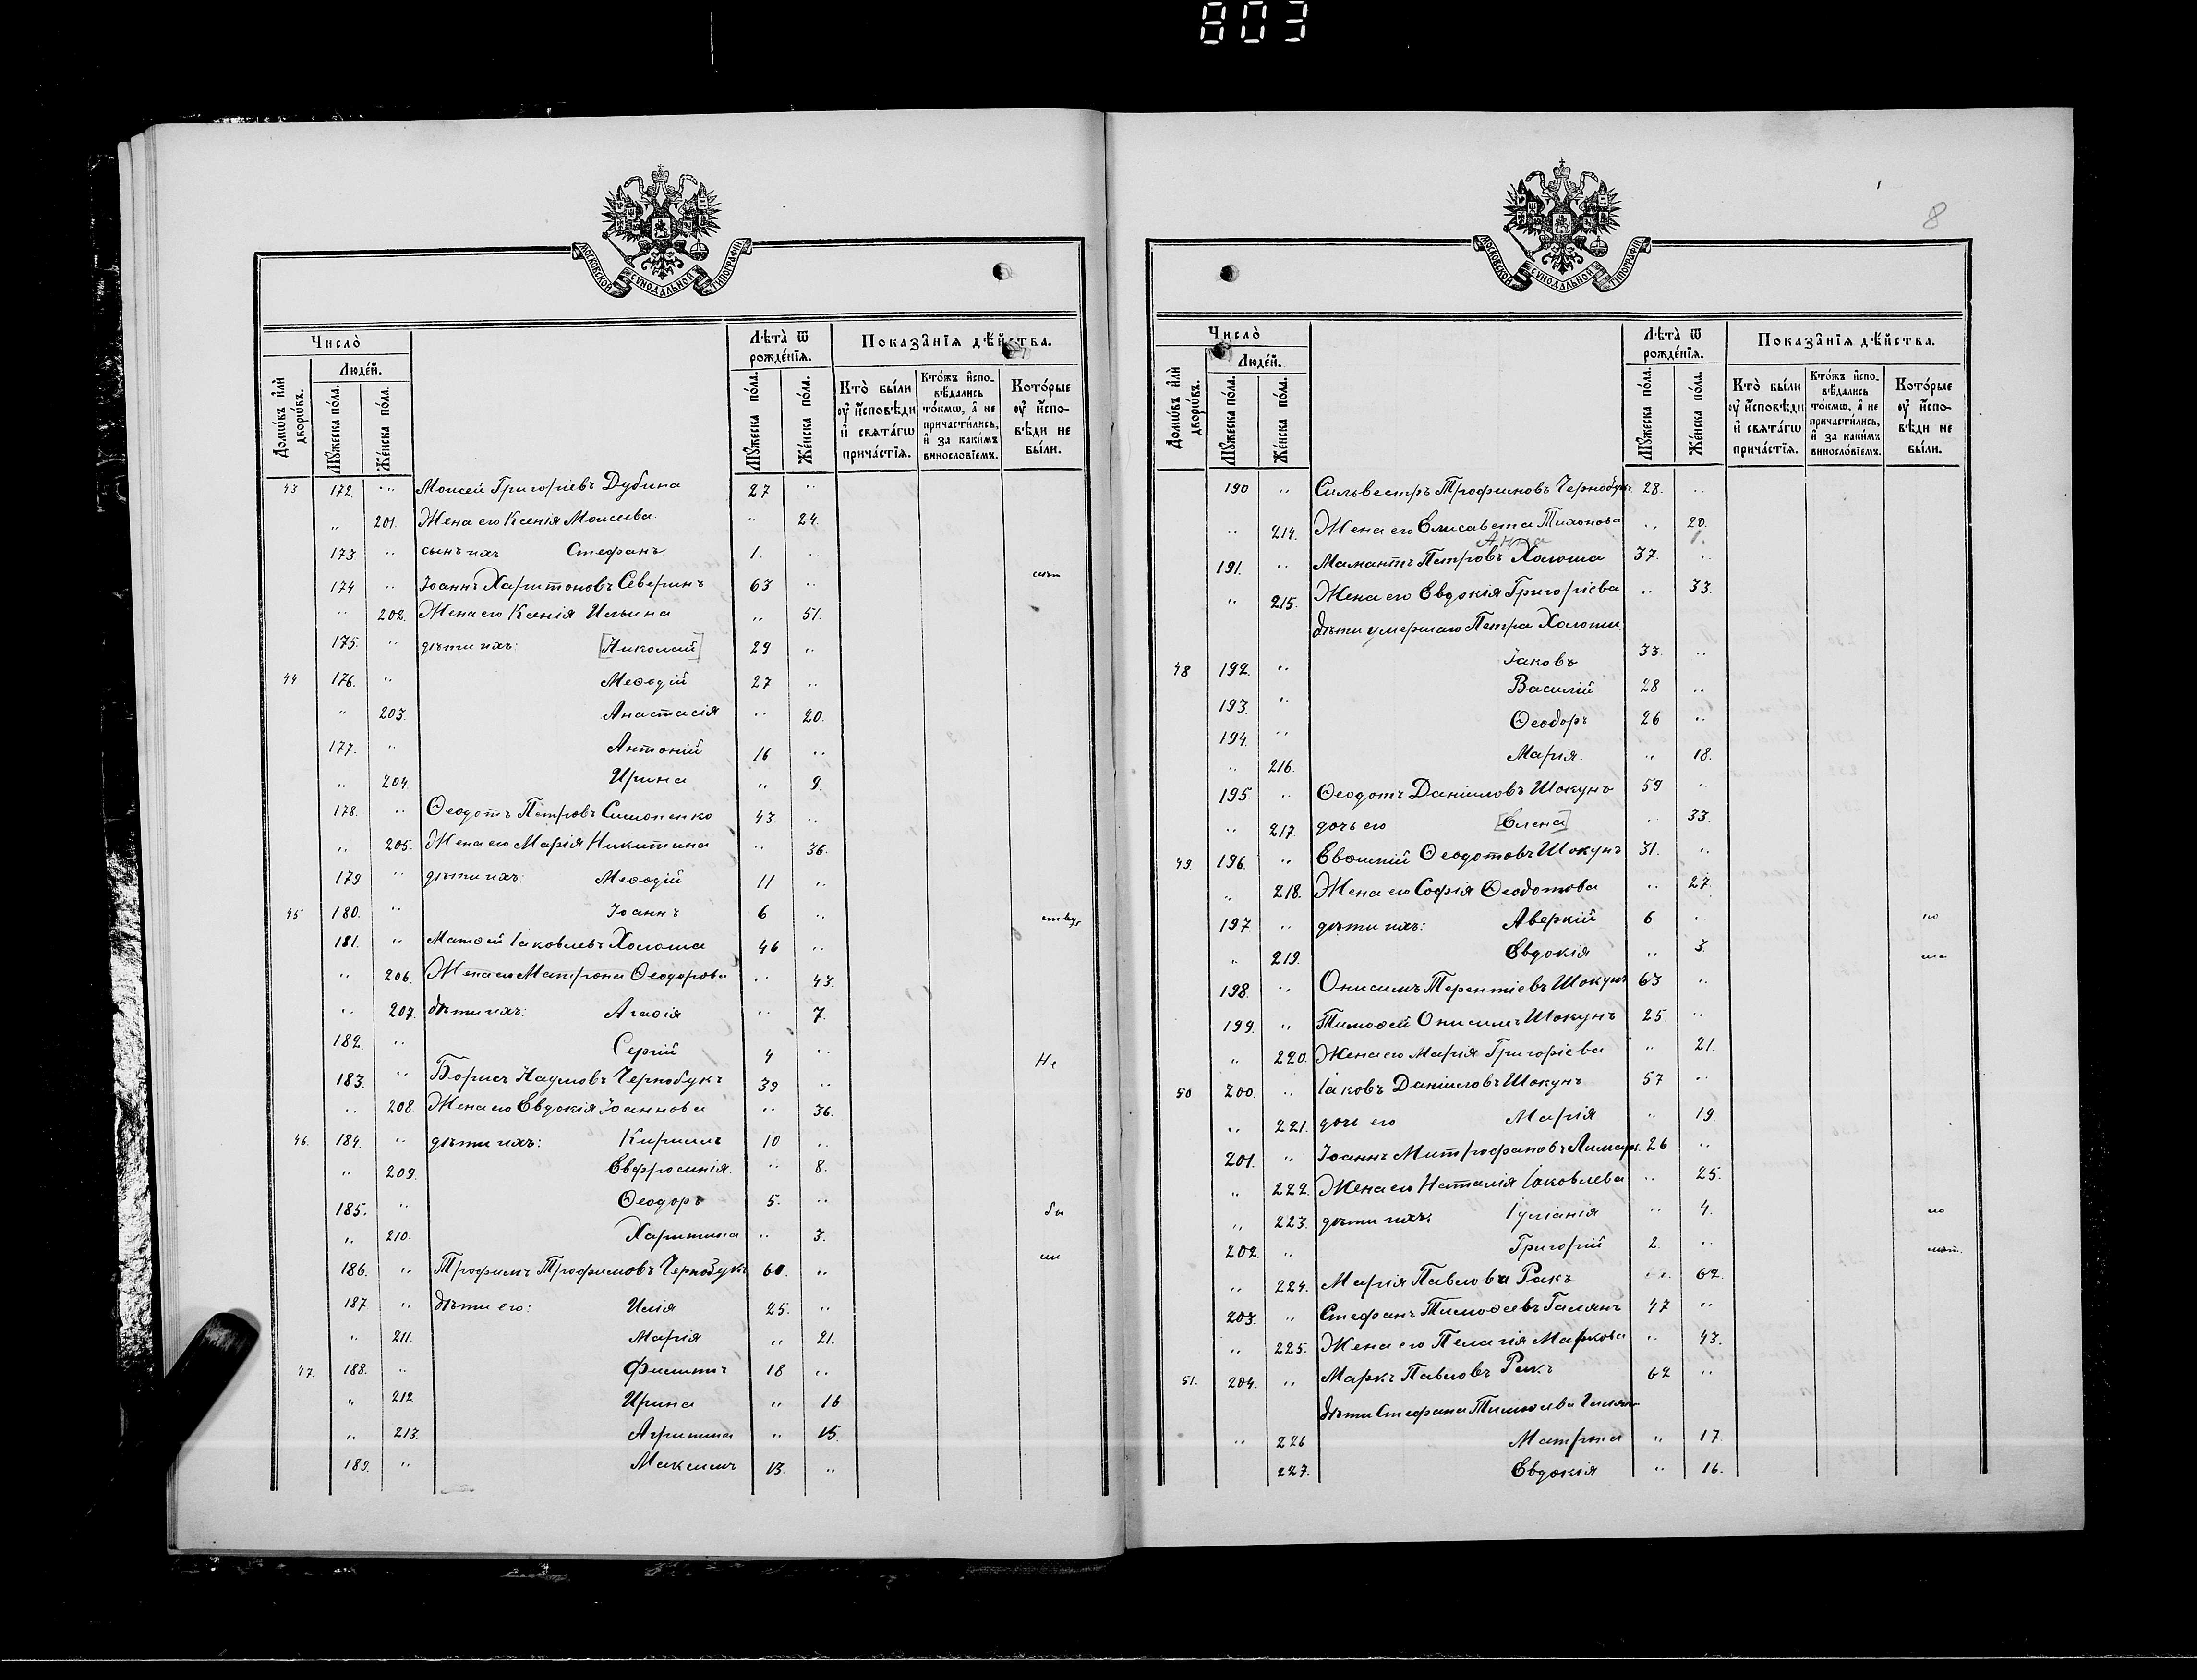 803
МОСКОВСКОЙ СѴНОДАЛЬНОЙ ТИПОГРАФІИ
Число̀
Лѣта̀ ѿ рожде́нїѧ.
Показа̂нїѧ дѣ́йства.
Домѡ́въ и҆лѝ дворѡ́въ.
Люде́й.
Мꙋ́жеска по́ла.
Же́нска по́ла.
Мꙋ́жеска по́ла.
Же́нска по́ла.
Кто̀ бы́ли оу҆ и҆́сповѣди и҆ свѧта́гѡ прича́стїѧ.
Кто́жъ и҆спо-вѣ́дались то́кмѡ, а҆ не причасти́лись, и҆ за каки́мъ винослóвїемъ.
Кото́рые оу҆ и҆́спо-вѣди не бы́ли.
43 172. " Моисей Григоріевъ Дубина 27 "
" 201. Жена его Ксенія Моисеева. " 24.
173 " сынъ ихъ Стефанъ 1. "
174 " Іоаннъ Харитоновъ Северинъ 63 "
" 202. Жена его Ксенія Ильина " 51.
175. " дѣти ихъ: [Николай] 29 "
44 176. " Меѳодій 27 "
" 203. Анастасія " 20.
177. " Антоній 16 "
" 204. Ирина " 9.
178. " Ѳеодотъ Петровъ Симоненко 43. "
" 205. Жена его Марія Никитина " 36.
179 " дѣти ихъ: Меѳодій 11 "
45 180. " Іоаннъ 6 "
181. " Матѳей Іаковлевъ Холоша 46 "
" 206. Жена его Матрона Ѳеодорова " 43.
" 207. дѣти ихъ: Агаѳія " 7.
182. " Сергій 4 " Не
183. " Борисъ Наумовъ Чернобукъ 39 "
" 208. Жена его Евдокія Іоаннова " 36.
46. 184. " дѣти ихъ: Кириллъ 10 "
" 209. Евфросинія. " 8.
185. " Ѳеодоръ 5. " бы
" 210. Харитина " 3.
ли
186. " Трофимъ Трофимовъ Чернобукъ 60. "
187 " дѣти его: Илія 25. "
" 211. Марія " 21.
47. 188. " Филиппъ 18 "
" 212 Ирина " 16
" 213. Агрипина " 15.
189. " Максимъ 13. "
8
МОСКОВСКОЙ СѴНОДАЛЬНОЙ ТИПОГРАФІИ
Число̀
Лѣта̀ ѿ рожде́нїѧ.
Показа̂нїѧ дѣ́йства.
Домѡ́въ и҆лѝ дворѡ́въ.
Люде́й.
Мꙋ́жеска по́ла.
Же́нска по́ла.
Мꙋ́жеска по́ла.
Же́нска по́ла.
Кто̀ бы́ли оу҆ и҆́сповѣди и҆ свѧта́гѡ прича́стїѧ.
Кто́жъ и҆спо-вѣ́дались то́кмѡ, а҆ не причасти́лись, и҆ за каки́мъ винослóвїемъ.
Кото́рые оу҆ и҆́спо-вѣди не бы́ли.
190 " Сильвестръ Трофимовъ Чернобукъ. 28. "
" 214. Жена его Елисавета Тихонова " 20.
Анна 1.
191. " Мамантъ Петровъ Холоша 37. "
" 215. Жена его Евдокія Григоріева " 33.
дѣти умершаго Петра Холоши
48 192. " Іаковъ 33. "
193. " Василій 28 "
194. " Ѳеодоръ 26 "
" 216. Марія. " 18.
195. " Ѳеодотъ Даніиловъ Шокунъ 59 "
" 217. дочь его [Елена] " 33.
49. 196. " Евѳимій Ѳеодотовъ Шокунъ 31. "
" 218. Жена его Софія Ѳеодотова " 27.
197. " дѣти ихъ: Аверкій 6 "
" 219. Евдокія " 3.
198. " Онисимъ Терентіевъ Шокунъ 63 "
199. " Тимоѳей Онисим. Шокунъ 25. "
" 220. Жена его Марія Григоріева " 21.
50 200. " Іаковъ Даніиловъ Шокунъ 57 "
" 221. дочь его Марія " 19.
201. " Іоаннъ Митрофановъ 26 "
" 222. Жена его Наталія Іаковлева " 25.
" 223. дѣти ихъ: Іуліанія " 4.
202. " Григорій 2. "
" 224. Марія Павлова Ракъ " 62.
203. " Стефанъ Тимоѳеевъ Галянъ 47 "
" 225. Жена его Пелагія Маркова " 43.
51. 204. " Маркъ Павловъ Ракъ 62 "
дѣти Стефана Тимоѳеева
" 226 Матрона " 17.
227. Евдокія " 16.